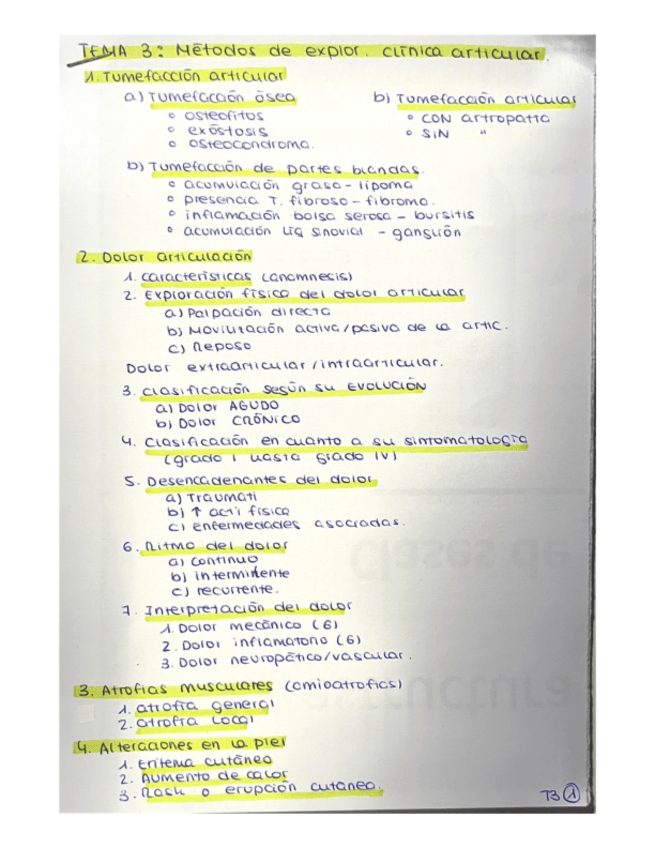 TEMA 3: Métodos de explor. clínica articular.
1. Tumefacción articular
a) Tumefacción ósea
b) Tumefacción articular
◦ osteofitos
◦ CON artropatía
◦ exóstosis
◦ SIN "
◦ osteocondroma.
b) Tumefacción de partes blandas.
◦ acumulación grasa - lipoma
◦ presencia T. fibroso - fibroma.
◦ inflamación bolsa serosa - bursitis
◦ acumulación líq sinovial - ganglión
2. Dolor articulación
1. características (anamnesis)
2. Exploración física del dolor articular
a) Palpación directa
b) Movilización activa/pasiva de la artic.
c) Reposo
Dolor extraarticular/intraarticular.
3. clasificación según su EVOLUCIÓN
a) Dolor AGUDO
b) Dolor CRÓNICO
4. Clasificación en cuanto a su sintomatología
(grado I hasta grado IV)
5. Desencadenantes del dolor
a) Traumati
b) ↑ acti física
c) enfermedades asociadas.
6. Ritmo del dolor
a) continuo
b) intermitente
c) recurrente.
7. Interpretación del dolor
1. Dolor mecánico (6)
2. Dolor inflamatorio (6)
3. Dolor neuropático/vascular.
3. Atrofias musculares (amioatrofias)
1. atrofia general
2. atrofia local
4. Alteraciones en la piel
1. Eritema cutáneo
2. Aumento de calor
3. Rash o erupción cutánea.
T3 1
Clases de
structura